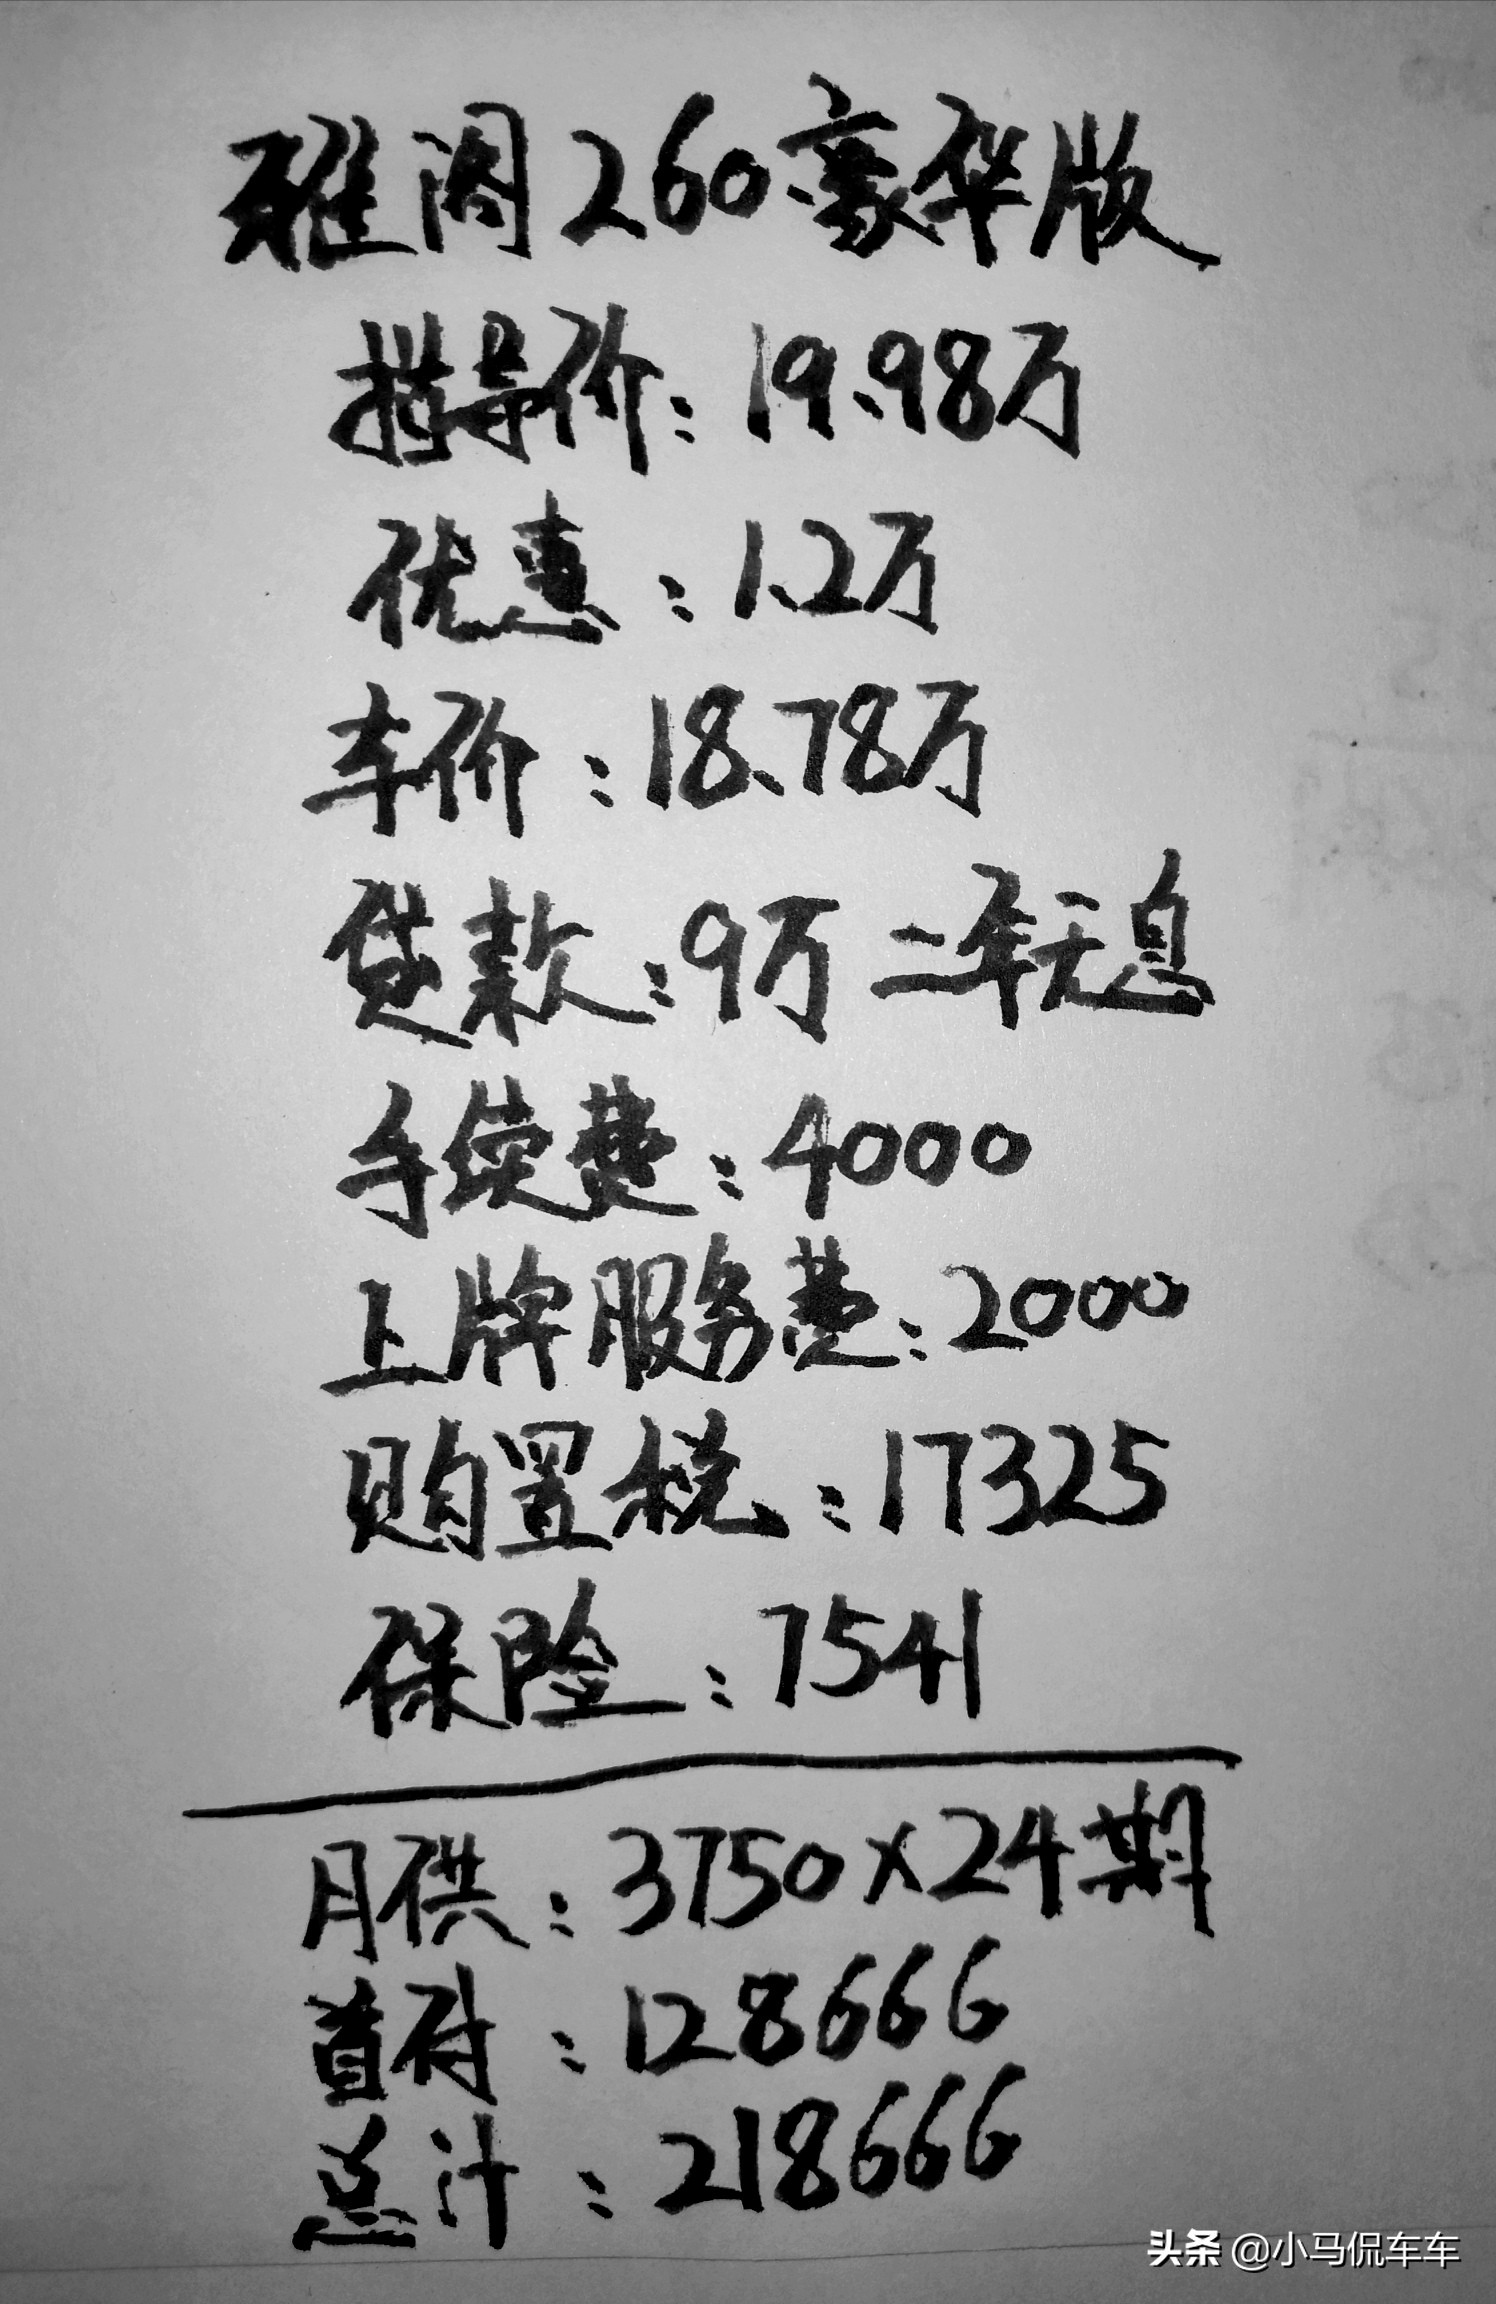 雅阁260豪华版
指导价：19.98万
优惠：1.2万
车价：18.78万
贷款：9万 二年无息
手续费：4000
上牌服务费：2000
购置税：17325
保险：7541
月供：3750×24期
首付：128666
总计：218666
头条 @小马侃车车